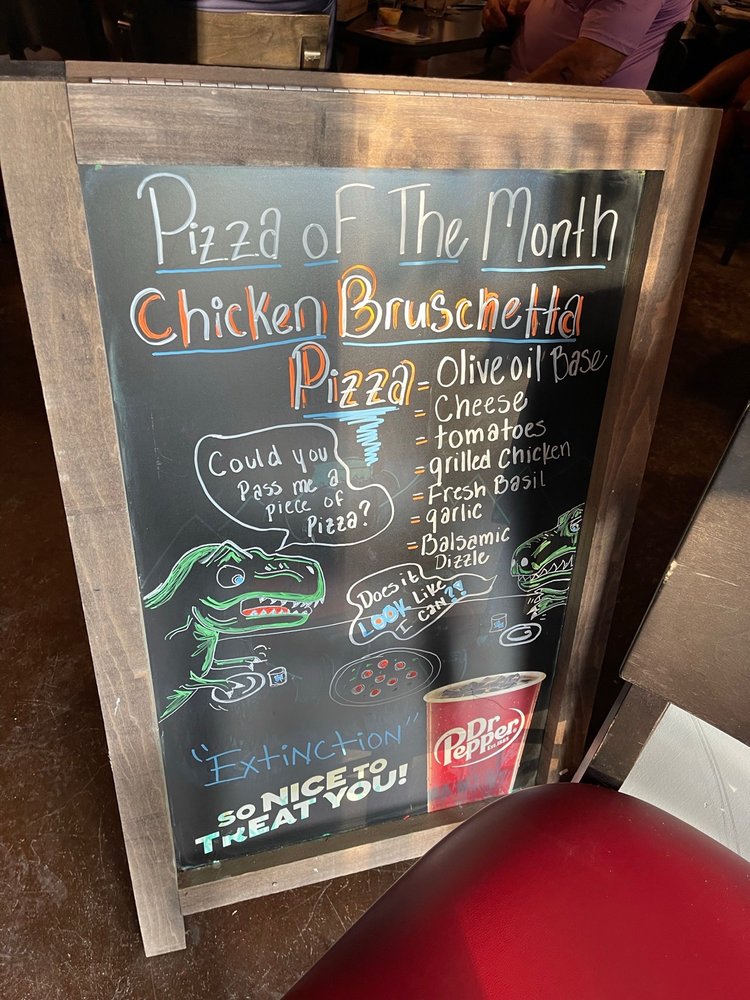 Pizza of The Month
Chicken Bruschetta
Pizza
= Olive oil Base
= Cheese
= tomatoes
= grilled Chicken
= Fresh Basil
= garlic
= Balsamic
Dizzle
Could you
Pass me a
piece of
Pizza?
Does it
LOOK Like
I can?!
"Extinction"
SO NICE TO
TREAT YOU!
Dr
Pepper
EST. 1885